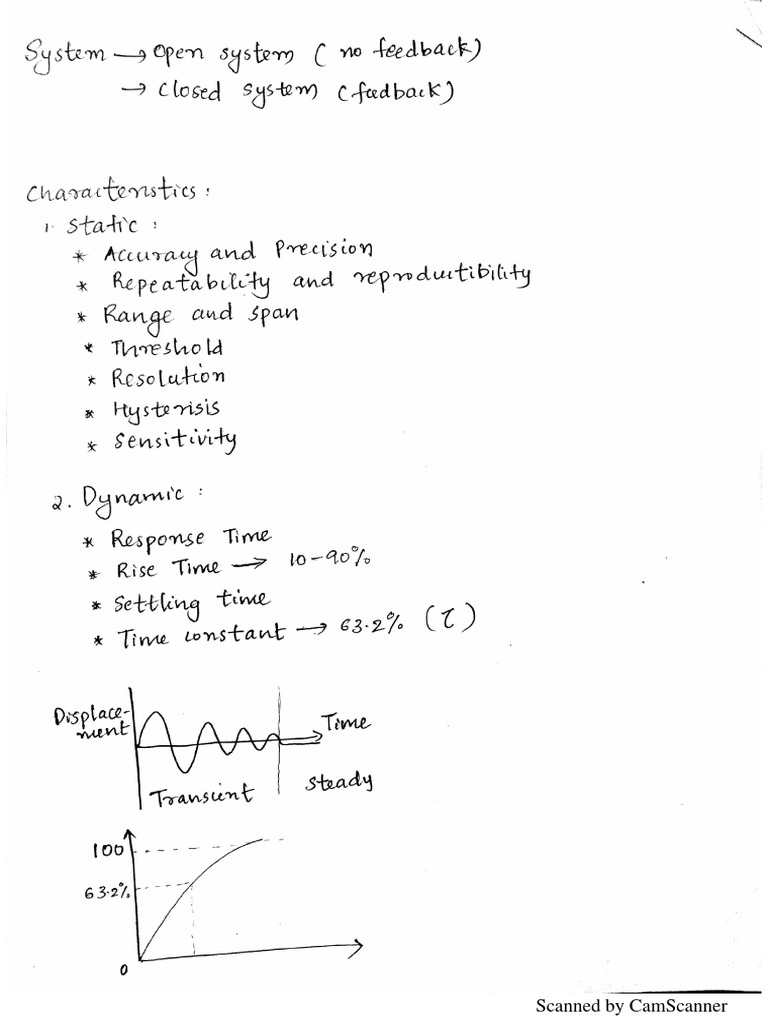 System → open system ( no feedback)
→ closed system (feedback)
Characteristics :
1. Static :
* Accuracy and Precision
* Repeatability and reproductibility
* Range and span
* Threshold
* Resolution
* Hysterisis
* Sensitivity
2. Dynamic :
* Response Time
* Rise Time → 10-90%
* Settling time
* Time constant → 63.2% (τ)
Displace-
ment
Time
Transient
steady
100
63.2%
0
Scanned by CamScanner